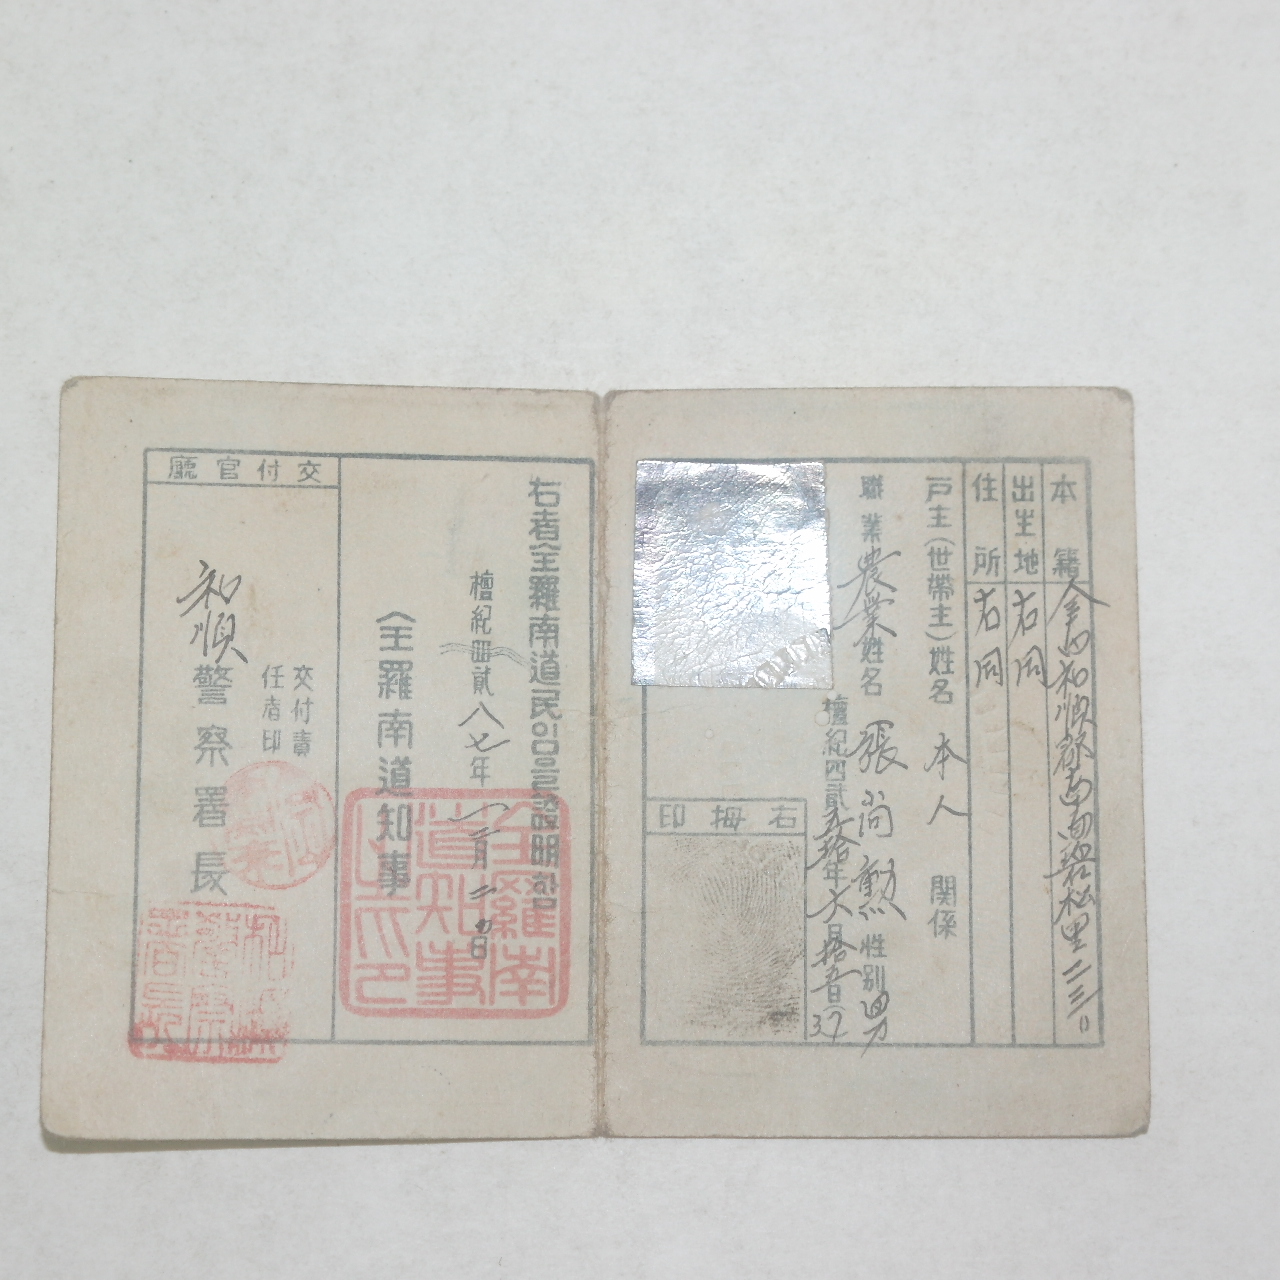 本籍 全南和順郡南面碧松里二三〇
出生地 右同
住所 右同
戸主(世帶主)姓名 本人 関係
職業 農業 姓名 張尚勳 性別 男
檀紀四貳五拾年六月拾五日(37
右拇印
右者全羅南道民임을證明함
檀紀四貳八七年 二月二 日
全羅南道知事
全羅南道知事之印
交付官廳
交付責
任者印
和順警察署長